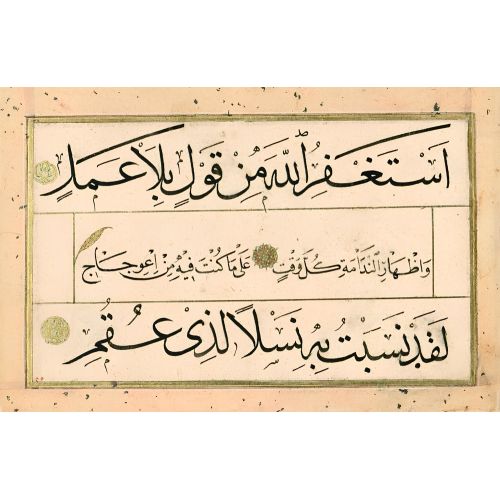 اَسْتَغْفِرُ اللّٰهَ مِنْ قَوْلٍ بِلاَ عَمَلٍ
وَاِظْهَارِ النَّدَامَةِ كُلَّ وَقْتٍ عَلٰى مَا كُنْتُ فِيْهِ مِنِ اعْوِجَاجٍ
لَقَدْ نَسَبْتُ بِهِ نَسْلاً لِذِى عُقُمِ